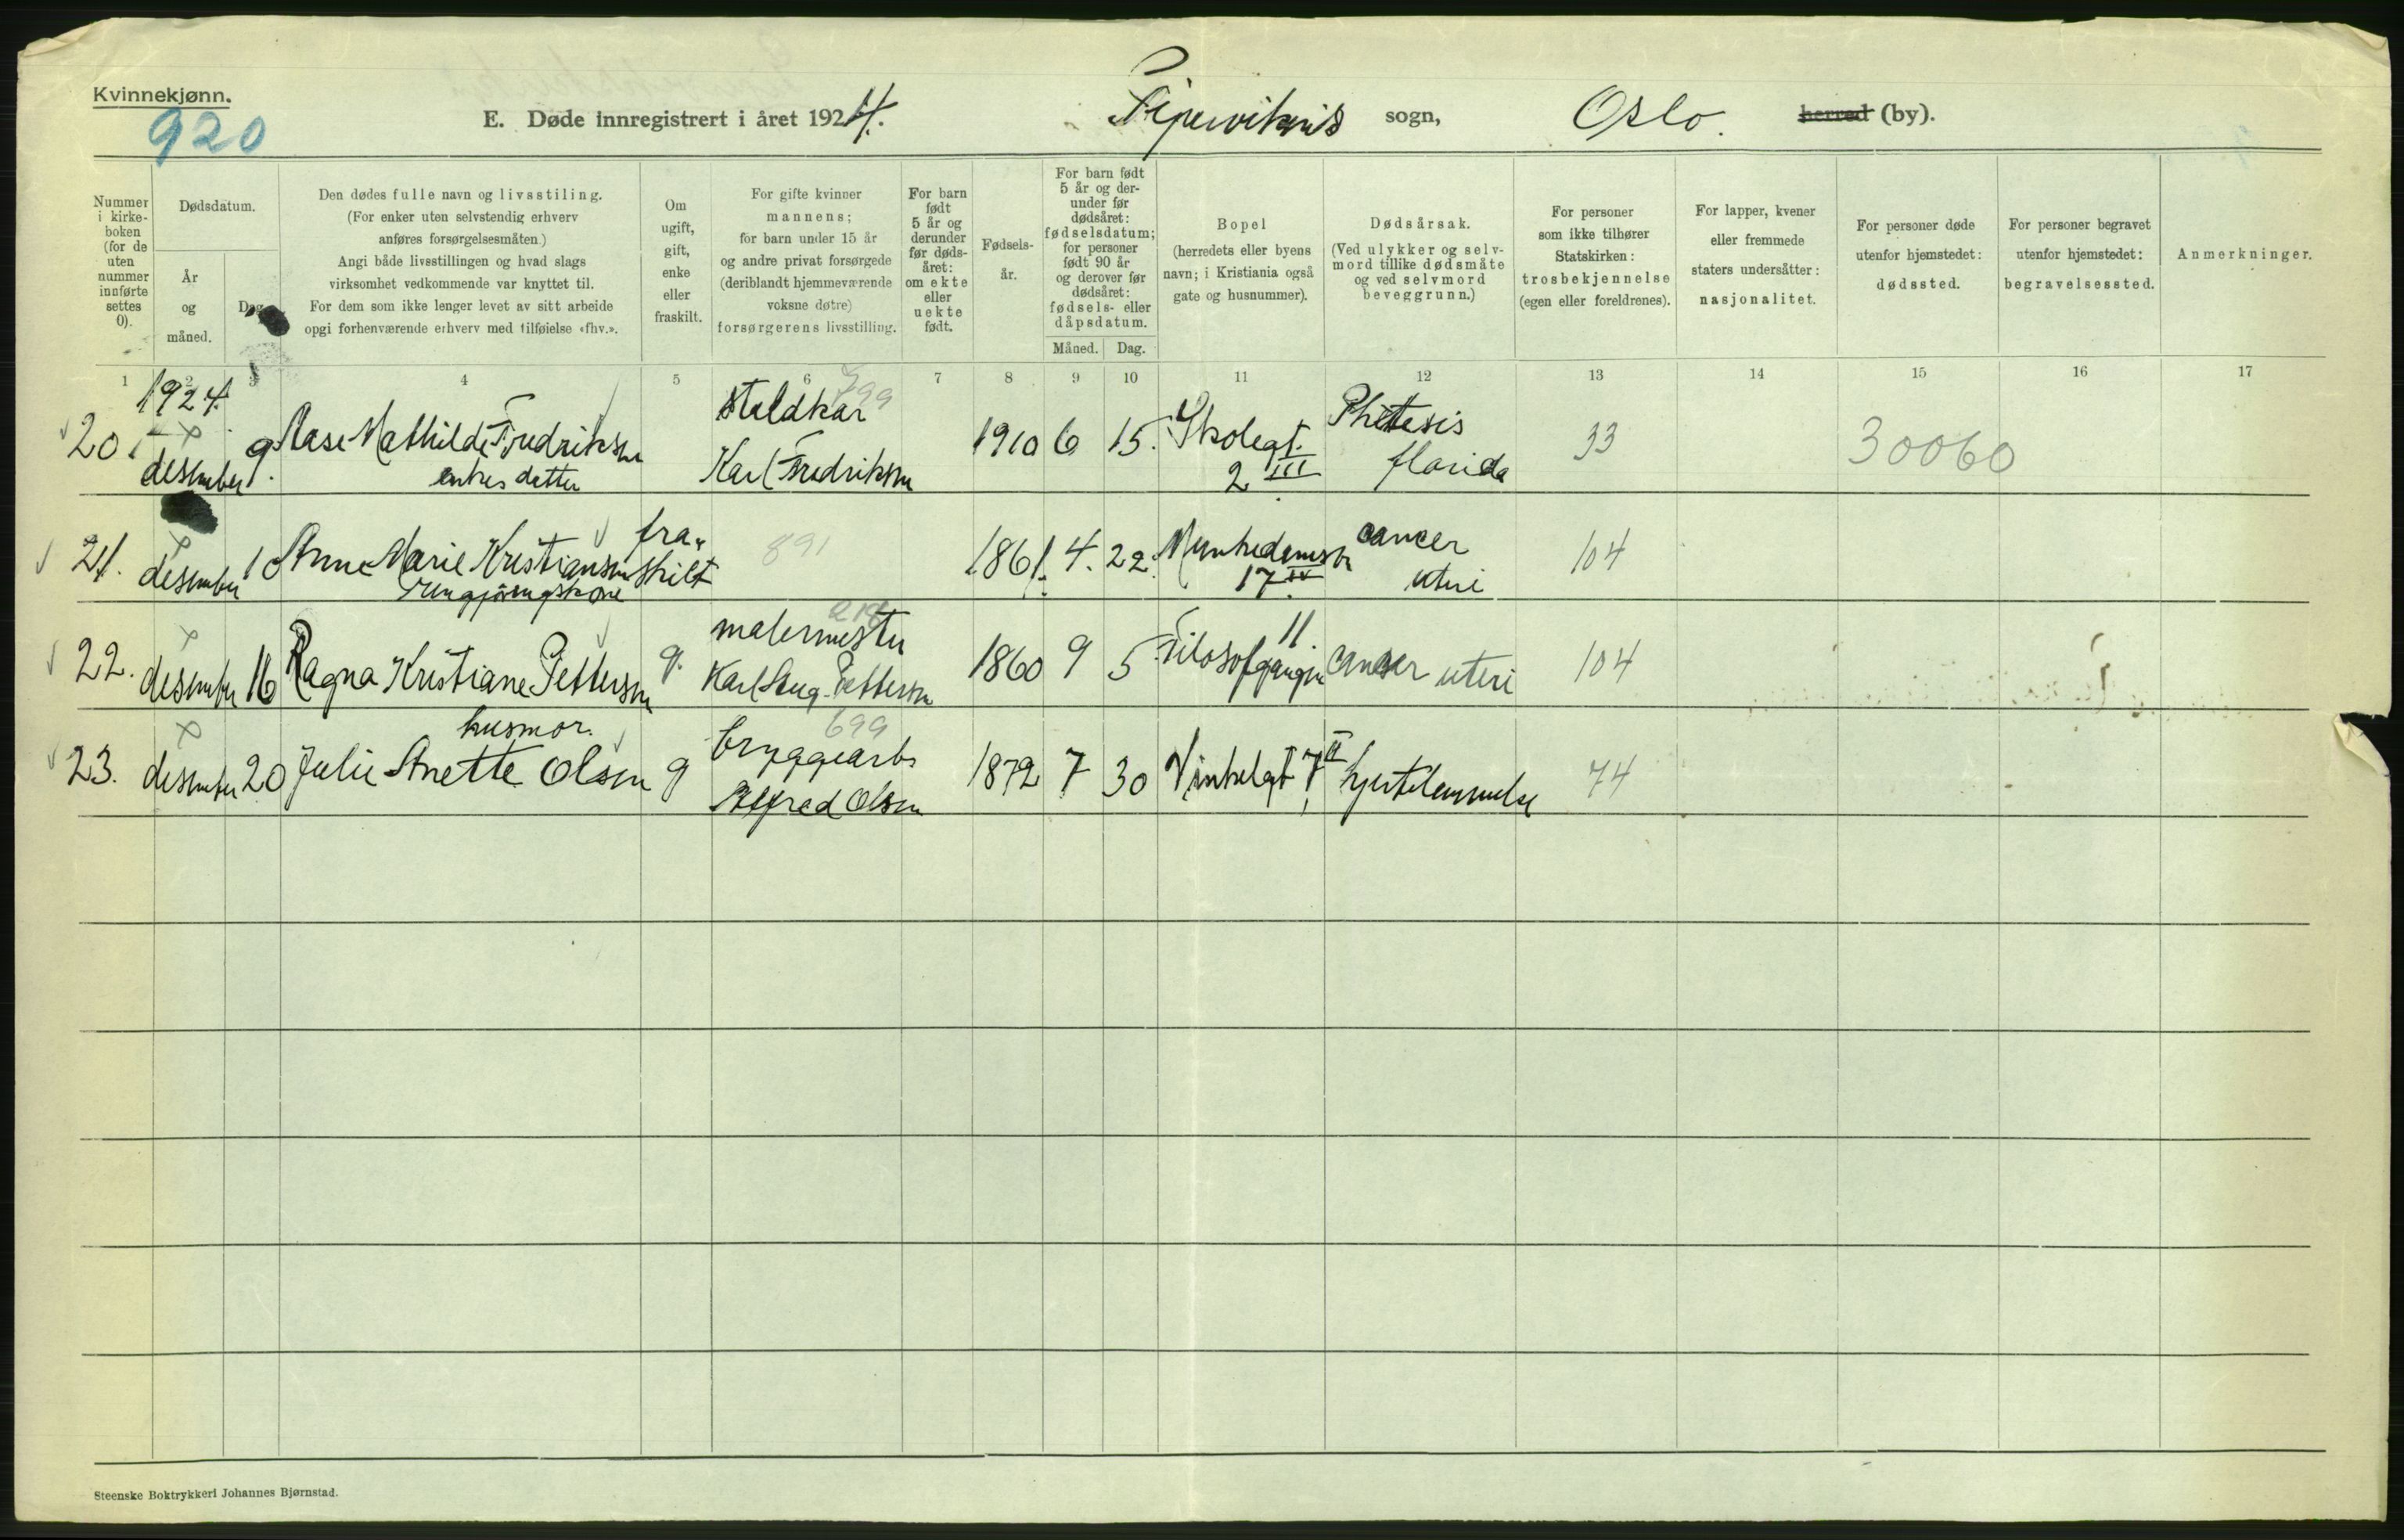 Kvinnekjønn.
920
E. Døde innregistrert i året 1924. Pipervikens sogn, Oslo. herred (by).
Nummer i kirkeboken (for de uten nummer innførte settes 0).
Dødsdatum.
År og måned.
Dag.
Den dødes fulle navn og livsstiling.
(For enker uten selvstendig erhverv
anføres forsørgelsesmåten.)
Angi både livsstillingen og hvad slags
virksomhet vedkommende var knyttet til.
For dem som ikke lenger levet av sitt arbeide
opgi forhenværende erhverv med tilføielse «fhv.».
Om ugift, gift, enke eller fraskilt.
For gifte kvinner
mannens;
for barn under 15 år
og andre privat forsørgede
(deriblandt hjemmeværende
voksne døtre)
forsørgerens livsstilling.
For barn født 5 år og derunder før dødsåret: om ekte eller uekte født.
Fødselsår.
For barn født 5 år og derunder før dødsåret: fødselsdatum; for personer født 90 år og derover før dødsåret: fødsels- eller dåpsdatum.
Måned. Dag.
Bopel
(herredets eller byens
navn; i Kristiania også
gate og husnummer).
Dødsårsak.
(Ved ulykker og selvmord tillike dødsmåte
og ved selvmord
beveggrunn.)
For personer
som ikke tilhører
Statskirken:
trosbekjennelse
(egen eller foreldrenes).
For lapper, kvener
eller fremmede
staters undersåtter:
nasjonalitet.
For personer døde
utenfor hjemstedet:
dødssted.
For personer begravet
utenfor hjemstedet:
begravelsessted.
Anmerkninger.
1 2 3 4 5 6 7 8 9 10 11 12 13 14 15 16 17
1924 799
20. desember 9. Aase Mathilde Fredriksen staldkar 1910 6 15. Skolegt. Phtesis 33 30060
enkes datter Karl Fredriksen 2 III florida
21. desember 10 Anne Marie Kristiansen fraskilt 891 1861. 4. 22. Munkedamsv. cancer 104
Rengjøringskone 17 IV uteri
22. desember 16 Ragna Kristiane Pettersen g. malermester 1860 9 5. Filosofgangen 11 cancer uteri 104
Karl Aug. Pettersen
husmor. 699
23. desember 20 Julie Anette Olsen g bryggearb. 1872 7 30 Vinkelgt 7 II hjertelammelse 74
Alfred Olsen
Steenske Boktrykkeri Johannes Bjørnstad.